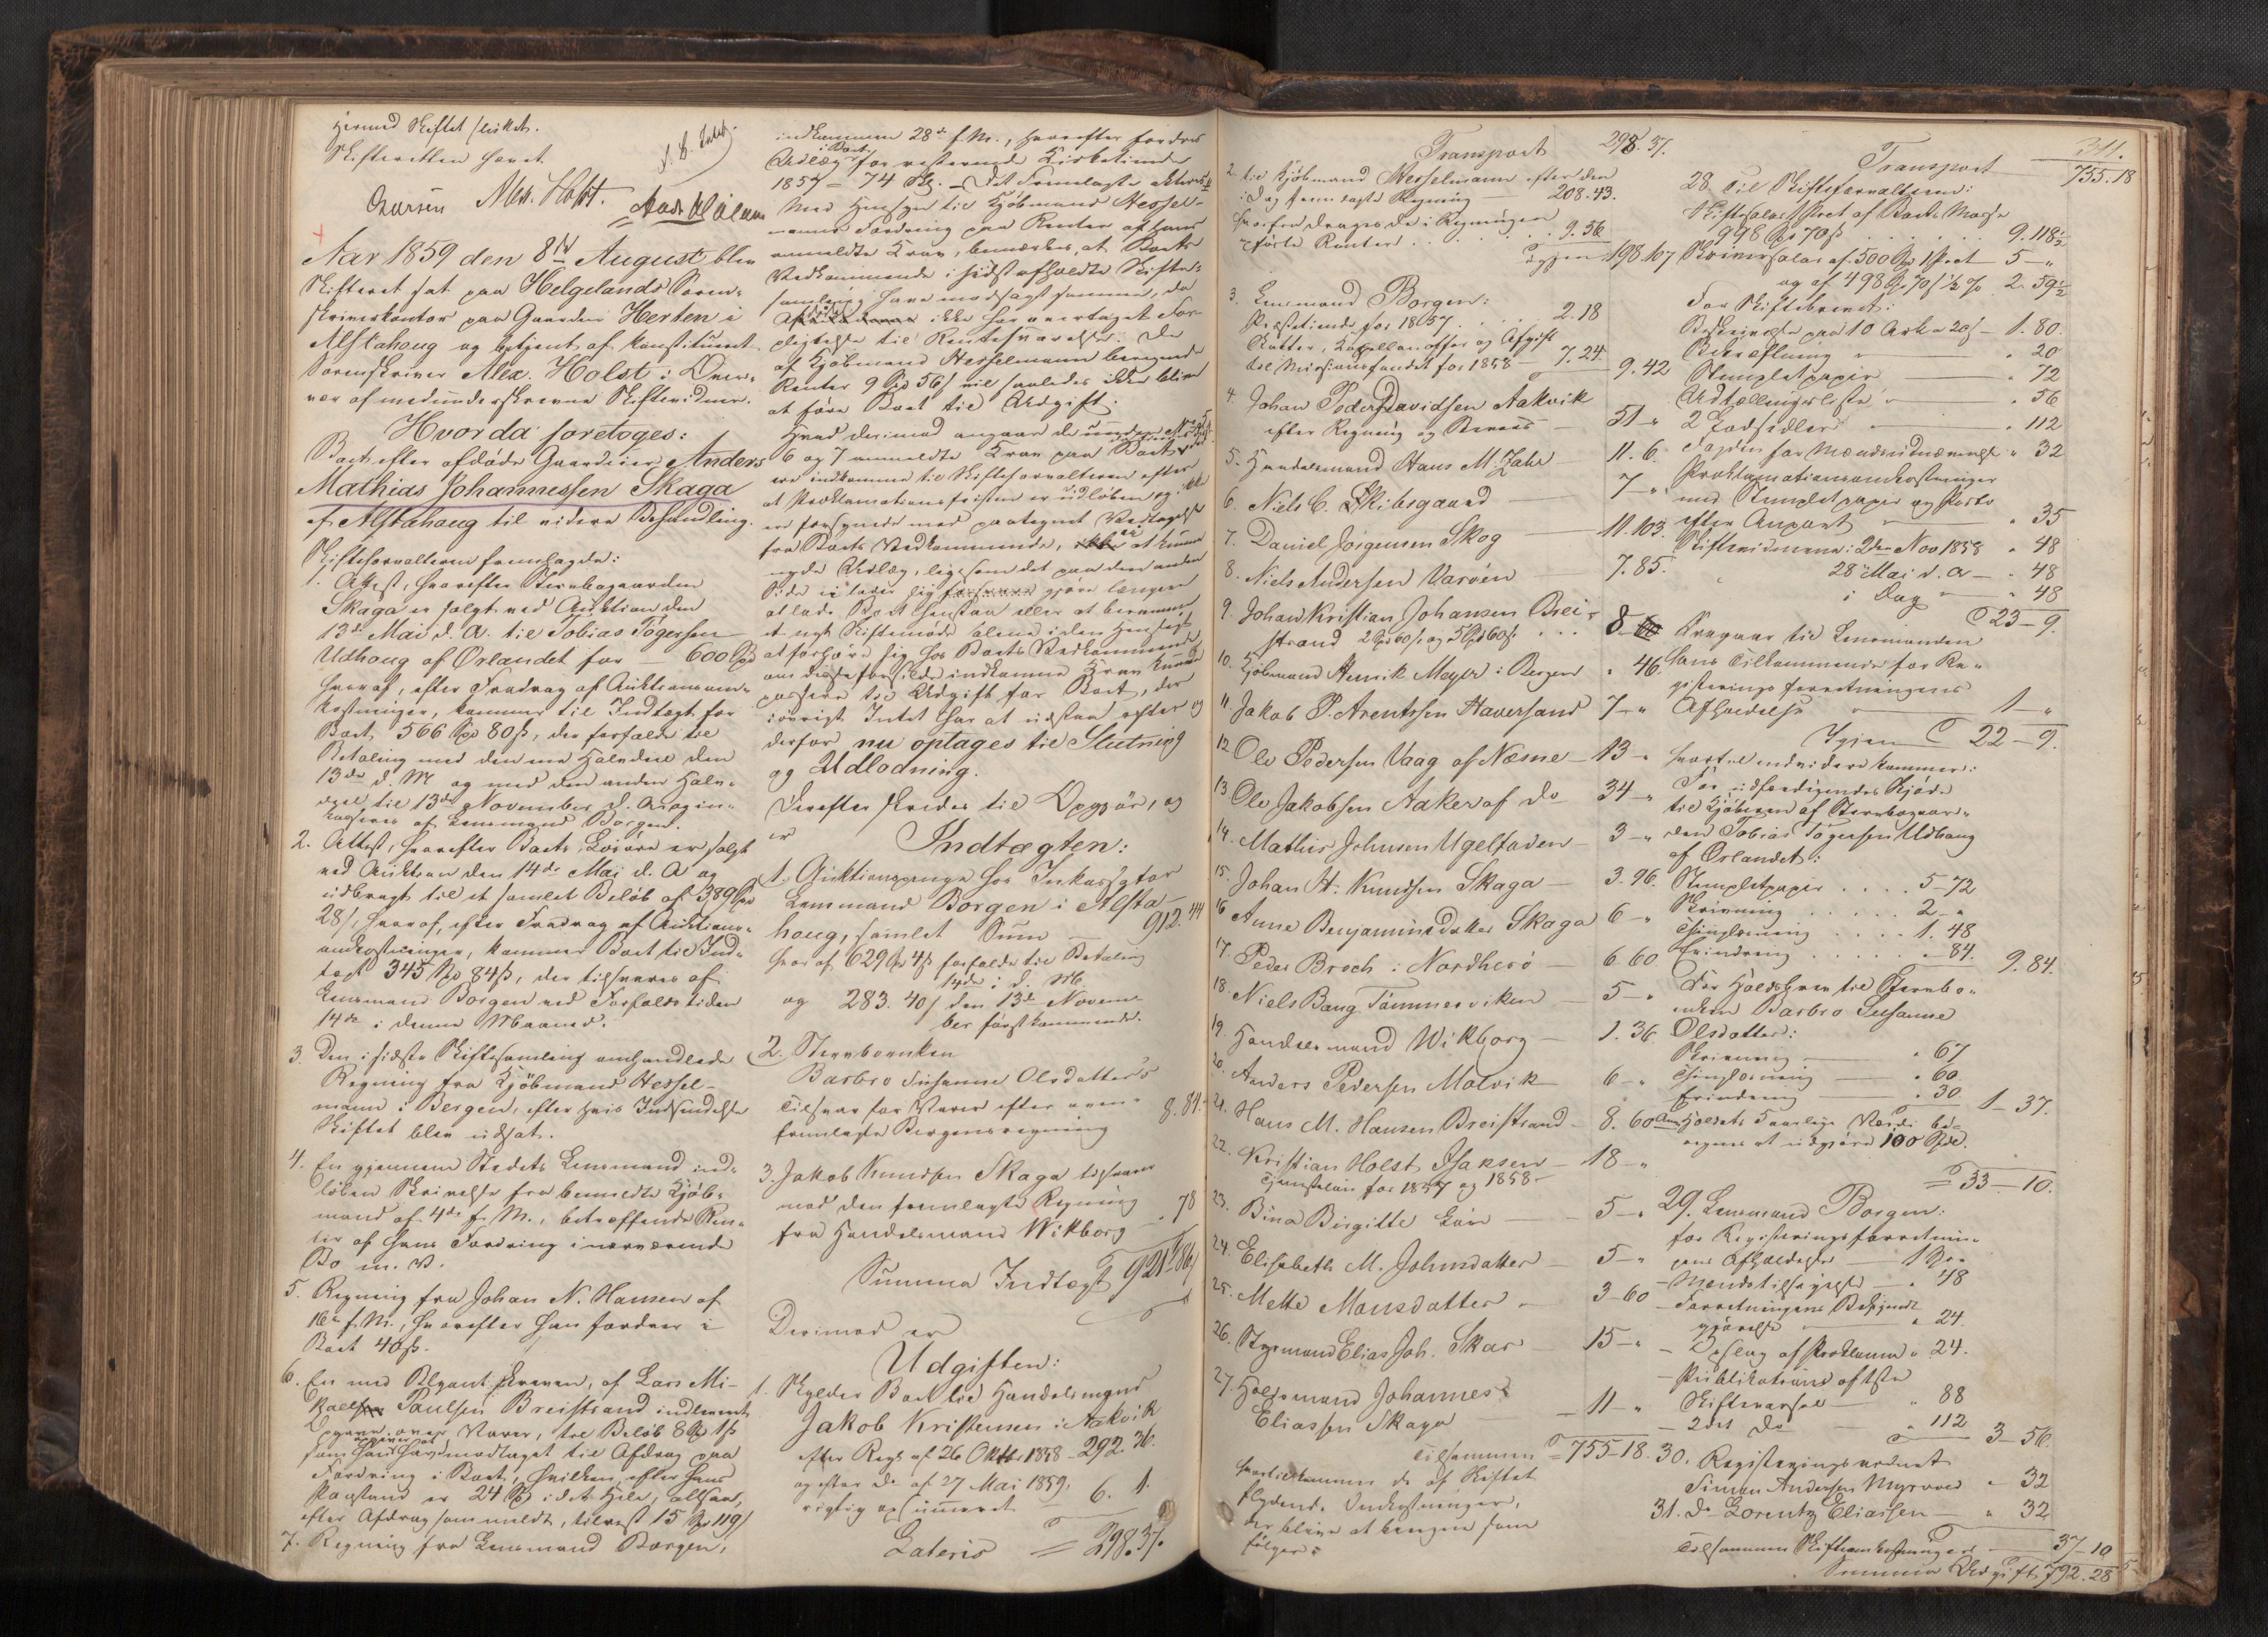 hermed Skiftet sluttet.
Skifteretten hævet
Alex. Holst.
Aar 1859 den 8de August blev
Skifteret sat paa Helgelands Soren-
skriverkontor paa Gaarden Herten i
Alstahaug og betjent af konstitueret
Sorenskriver Alex. Holst i Overvær
af medunderskrevne Skiftevidner.
Hvorda foretoges:
Boet efter afdøde Gaardeier Anders
Mathias Johannessen Skaga
af Alstahaug til videre Behandling.
Skifteforvalteren fremlagde:
1. Attest, hvorefter Stervbogaarden
Skaga er solgt ved Auktion den
13de Mai d. A. til Tobias Tøgersen
Udhaug af Ørlandet for — 600 Spd
hvoraf, efter Fradrag af Auktionsom-
kostninger, kommer til Indtægt for
Boet 566 Spd 80 s, der forfalde til
Betaling med den ene Halvdel den
13de d. M. og med den anden Halv-
del til 13de November d. A. og in-
kasseres af Lensmand Borgen.
2. Attest, hvorefter Boets Løsøre er solgt
ved Auktion den 14de Mai d. A. og
udbragt til et samlet Beløb af 389 Spd
28 s, hvoraf, efter Fradrag af Auktions-
omkostninger, kommer Boet til Ind-
tægt 345 Spd 84 s, der tilsvares af
Lensmand Borgen ved Forfaldstiden
14de i denne Maaned.
3. Den i sidste Skiftesamling omhandlede
Regning fra Kjøbmand Hessel-
mann i Bergen, efter hvis Indsendelse
Skiftet blev udsat.
4. En gjennem Stedets Lensmand ind-
løben Skrivelse fra bemeldte Kjøb-
mand af 4de f. M., betreffende Ren-
ter af hans Fordring i nærværende
Bo m. V.
5. Regning fra Johan N. Hansen af
16de f. M., hvorefter han fordrer i
Boet 40 s.
6. En med Blyant skreven, af Lars Mi-
kael Paulsen Breistrand indleveret
Opgave over Varer, til Beløb 8 Spd 1 s
som han opgiver at have modtaget til Afdrag paa
Fordring i Boet, hvilken, efter hans
Paastand er 24 Spd i det Hele, altsaa,
efter Afdrag som meldt, tilrest 15 Spd 119 s
7. Regning fra Lensmand Borgen,
indkommen 28de f. M., hvorefter fordres
Udlæg i Boet for resterende Kirketiende
1857 = 74 s. — Det Fremlagte akteres
Med Hensyn til Kjøbmand Hessel-
manns Fordring paa Renter af hans
anmeldte Krav, bemærkes, at Boets
Vedkommende i sidst afholdte Skifte-
samling have modsagt samme, da
ikke har overtaget For-
pligtelse til Rentesvarelse. De
af Kjøbmand Hesselmann beregnede
Renter 9 Spd 56 s vil saaledes ikke blive
at føre Boet til Udgift.
Hvad derimod angaar de under No 5,
6 og 7 anmeldte Krav paa Boet, da
ere indkomne til Skifteforvalteren efter
at Proklamationsfristen er udløben og ikke
ere forsynede med paategnet Vedtagelse
fra Boets Vedkommende, ei at kunne
nyde Udlæg, ligesom det paa den anden
Side ei lader sig gjøre længere
at lade Boet henstaa eller at berømme
et nyt Skiftemøde alene i den Hensigt
at forhøre sig hos Boets Vedkommende
om disse forsilde indkomne Krav kunde
passere til Udgift for Boet, der
iøvrigt Intet har at udstaa efter og
derfor nu optages til Slutning
og Udlodning.
Derefter skrides til Opgjør, og
er
Indtægten:
1. Auktionspenge hos Inkassator
Lensmand Borgen i Alsta-
haug, samlet Sum — 912.44
hvoraf 629 Spd 4 s forfalde til Betaling
14de i d. M.
og 283. 40 s den 13de Novem-
ber førstkommende.
2. Stervboenken
Barbro Susanne Olsdatters
Tilsvar for Varer efter oven-
fremlagte Bergensregning 8.84.
3. Jakob Knudsen Skaga tilsvarer
mod den fremlagte Regning
fra Handelsmand Wikborg — " 78
Summa Indtægt 921 86
Derimod er
Udgiften:
1. Skylder Boet til Handelsmand
Jakob Kristensen i Aakvik
efter Regn. af 26 Oktbr 1858 — 292. 36.
og efter do af 27 Mai 1859,
rigtig opsummeret — 6. 1.
Lateris = 298.37.
311.
Transport 298. 37.
2. til Kjøbmand Hesselmann efter den
i Dag fremlagte Regning — 208.43.
herfra drages de i Regningen
opførte Renter . . . . . . 9.56
Igjen 198.107
3. Lensmand Borgen:
Præstetiende for 1857 . . . 2.18
Skatter, Kapellanoffer og Afgift
til Missionsfondet for 1858 — 7.24.
9.42
4. Johan Peder Davidsen Aakvik
efter Regning og Bevis — 51 — "
5. Handelsmand Hans M. Zahl — 11. 6.
6. Niels C. Skibsgaard — 7 — "
7. Daniel Jørgensen Skog — 11.103.
8. Niels Andersen Varøen — 7.85.
9. Johan Kristian Johansen Brei-
strand 2 Spd 60 s. og 5 Spd 60 s. . . . 8 —
10. Kjøbmand Henrik Meyer i Bergen " 46.
11. Jakob P. Arentssen Haversand 7 — "
12. Ole Pedersen Vaag af Næsne — 13 — "
13. Ole Jakobsen Aaker af do 34 — "
14. Mathis Johnsen Ugelfaden — 3 — "
15. Johan H. Knudsen Skaga — 3.96.
16. Anne Benjaminsdatter Skaga 6 — "
17. Peder Broch i Nordherø — 6 60
18. Niels Bang Tømmerviken — 5 — "
19. Handelsmand Wikborg — 1. 36.
20. Anders Pedersen Molvik — 6 — "
21. Hans M. Hansen Breistrand — 8. 60
22. Kristian Holst Isaksen — 18 — "
Tjenesteløn for 1857 og 1858 —
23. Bina Birgitte Løn — 5 — "
24. Elisabeth M. Johnsdatter — 5 — "
25. Mette Monsdatter — 3 — 60
26. Styrmand Elias Joh. Skar — 15 — "
27. Holdsmand Johannes
Eliassen Skaga — 11 — "
Tilsammen = 755 — 18.
hvortil kommer de af Skiftet
flydende Omkostninger,
der bliver at beregne som
følger:
Transport 755.18
28. Til Skifteforvalteren:
Skiftesalær 1 Prct af Boets Masse
998 Spd 70 s . . . . . . . 9.118½
Skriversalær af 500 Spd 1 Prct — 5 — "
og af 498 Spd 70 s ½ % 2. 59½
For Skiftebrevet:
Beskrivelse paa 10 Ark a 20 s — 1. 80.
Bekræftning " " 20
Stemplet papir — " 72
Udtællingsliste — " 56
2 Lodsedler — " 112
Sportler for Mændsudnævnelse " 32
Proklamationsomkostninger
med Stemplet papir og Porto
efter Anpart — " 35
Skiftevidnerne: 2den Nov 1858 " 48
28 Mai d. A. — " 48
i Dag — " 48
23 — 9.
Fragaar til Lensmanden
hans Tilkommende for Re-
gisteringsforretningens
Afholdelse — 1 — "
Igjen 22 — 9.
hvortil endvidere kommer:
For udfærdigende Skjøde
til Kjøberen af Stervbogaar-
den Tobias Tøgersen Udhaug
af Ørlandet:
Stempletpapir . . . . 5 — 72
Skrivning . . . . . 2 — "
Thinglæsning . . . . 1. 48
Erindring . . . . . " — 84.
9.84.
For Holdsbrev til Stervbo-
enken Barbro Susanne
Olsdatter:
Skrivning — " 67
Thinglæsning — " 60
Erindring — " 30
1 — 37.
Anm. Holdets 5 aarlige Værdi be-
regnes at udgjøre 100 Spd.
= 33 — 10.
29. Lensmand Borgen:
for Registeringsforretnin-
gens Afholdelse — 1 Spd "
— Mændstilsigelse — " 48
— Forretningens Bekjendt
gjørelse — " 24.
— Opslag af Proklama " 24.
— Publikation af 1ste
Skiftevarsel — " 88
— 2det do " 112
3 — 56.
30. Registeringsvidnet
Simon Andersen Myrvold " 32
31. do Lorentz Eliassen — " 32
Tilsammen Skifteomkostninger — 37.10
Summa Udgift 792.28